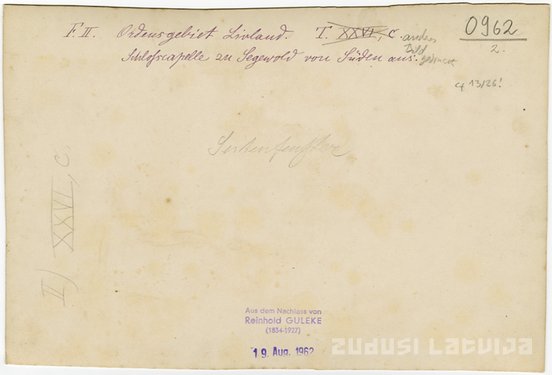 F. II. Ordensgebiet Livland. T. XXVI, c.
Schlosscapelle zu Segewold von Süden aus.
anderes
Bild
0962
2.
cf 13/26!
II) XXVI, c.
Aus dem Nachlass von
Reinhold GULEKE
(1834-1927)
19. Aug. 1962
ZUDUSI LATVIJA